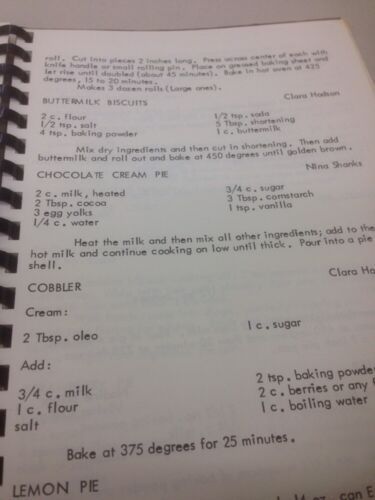 roll. Cut into pieces 2 inches long. Press across center of each with
knife handle or small rolling pin. Place on greased baking sheet and
let rise until doubled (about 45 minutes). Bake in hot oven at 425
degrees, 15 to 20 minutes.
Makes 3 dozen rolls (Large ones).
Clara Hodson
BUTTERMILK BISCUITS
2 c. flour 1/2 tsp. soda
1/2 tsp. salt 5 Tbsp. shortening
4 tsp. baking powder 1 c. buttermilk
Mix dry ingredients and then cut in shortening. Then add
buttermilk and roll out and bake at 450 degrees until golden brown.
Nina Shanks
CHOCOLATE CREAM PIE
2 c. milk, heated 3/4 c. sugar
2 Tbsp. cocoa 3 Tbsp. cornstarch
3 egg yolks 1 tsp. vanilla
1/4 c. water
Heat the milk and then mix all other ingredients; add to the
hot milk and continue cooking on low until thick. Pour into a pie
shell.
Clara Ho
COBBLER
Cream:
2 Tbsp. oleo 1 c. sugar
Add:
3/4 c. milk 2 tsp. baking powde
1 c. flour 2 c. berries or any f
salt 1 c. boiling water
Bake at 375 degrees for 25 minutes.
LEMON PIE
oz. can E